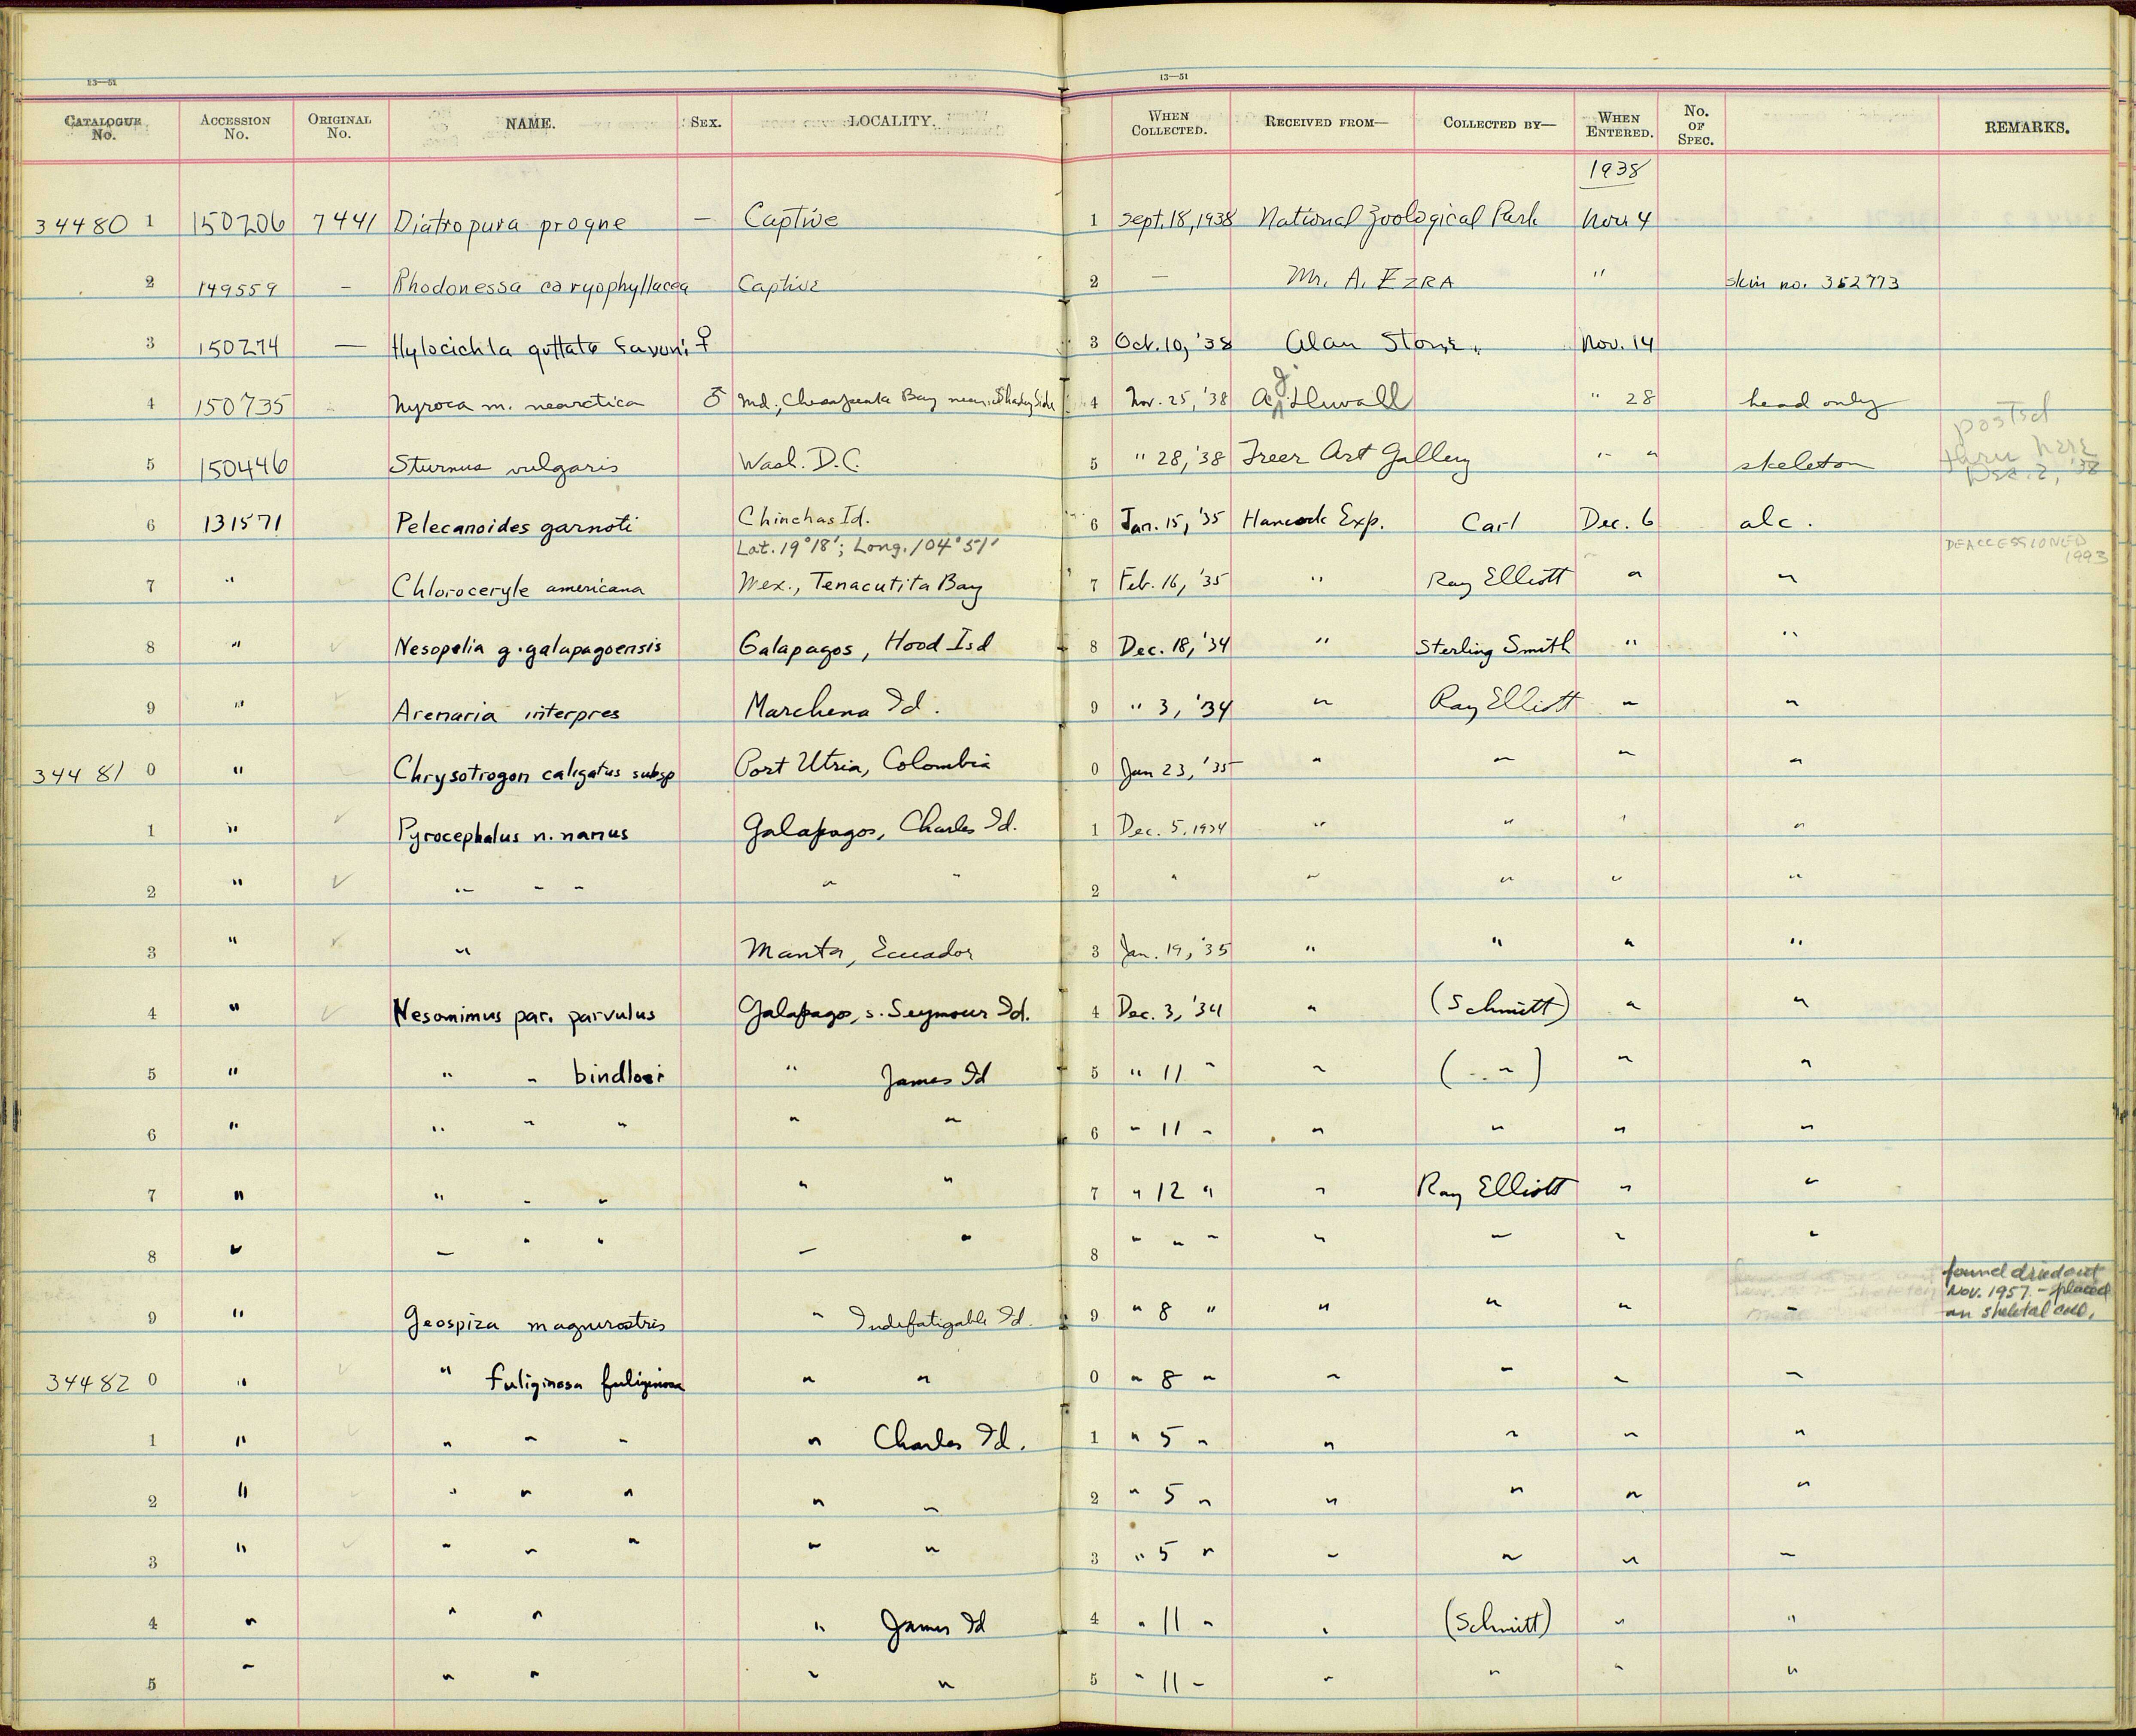 13—51 13—51
CATALOGUE No. ACCESSION No. ORIGINAL No. NAME. SEX. LOCALITY. WHEN COLLECTED. RECEIVED FROM— COLLECTED BY— WHEN ENTERED. No. OF SPEC. REMARKS.
1938
34480 1 150206 7441 Diatropura progne — Captive 1 Sept. 18, 1938 National Zoological Park Nov 4
2 149559 — Rhodonessa caryophyllacea Captive 2 — Mr. A. EZRA " skin no. 352773
3 150274 — Hylocichla guttata faxoni ♀ 3 Oct. 10, '38 Alan Stone. Nov. 14
4 150735 Nyroca m. nearctica ♂ Md., Chesapeake Bay near Shady Side 4 Nov. 25, '38 A. J. Duvall " 28 head only
5 150446 Sturnus vulgaris Wash. D.C. 5 " 28, '38 Freer Art Gallery " " skeleton posted thru here Dec. 2, '38
6 131571 Pelecanoides garnoti Chinchas Id. 6 Jan. 15, '35 Hancock Exp. Carl Dec. 6 alc.
Lat. 19°18'; Long. 104°51' DEACCESSIONED 1993
7 " Chloroceryle americana Mex., Tenacutita Bay 7 Feb. 16, '35 " Ray Elliott " "
8 " Nesopelia g. galapagoensis Galapagos, Hood Isd 8 Dec. 18, '34 " Sterling Smith " "
9 " Arenaria interpres Marchena Id. 9 " 3, '34 " Ray Elliott " "
34481 0 " Chrysotrogon caligatus subsp Port Utria, Colombia 0 Jan 23, '35 " " " "
1 " Pyrocephalus n. nanus Galapagos, Charles Id. 1 Dec. 5, 1934 " " " "
2 " ✓ " " " " " 2 " " " " "
3 " ✓ " Manta, Ecuador 3 Jan. 19, '35 " " " "
4 " ✓ Nesomimus par. parvulus Galapagos, S. Seymour Id. 4 Dec. 3, '34 " (Schmitt) " "
5 " " " bindloei " James Id 5 " 11 " " ( " " ) " "
6 " " " " " " 6 " 11 " " " " "
7 " " " " " " 7 " 12 " " Ray Elliott " "
8 " " " " " " 8 " " " " " " "
found dried out
Nov. 1957 – placed
9 " Geospiza magnirostris " Indefatigable Id. 9 " 8 " " " " " in skeletal coll.
34482 0 " " fuliginosa fuliginosa " " 0 " 8 " " " " "
1 " " " " " Charles Id. 1 " 5 " " " " "
2 " " " " " " 2 " 5 " " " " "
3 " " " " " " 3 " 5 " " " " "
4 " " " " James Id 4 " 11 " " (Schmitt) " "
5 " " " " " 5 " 11 " " " " "